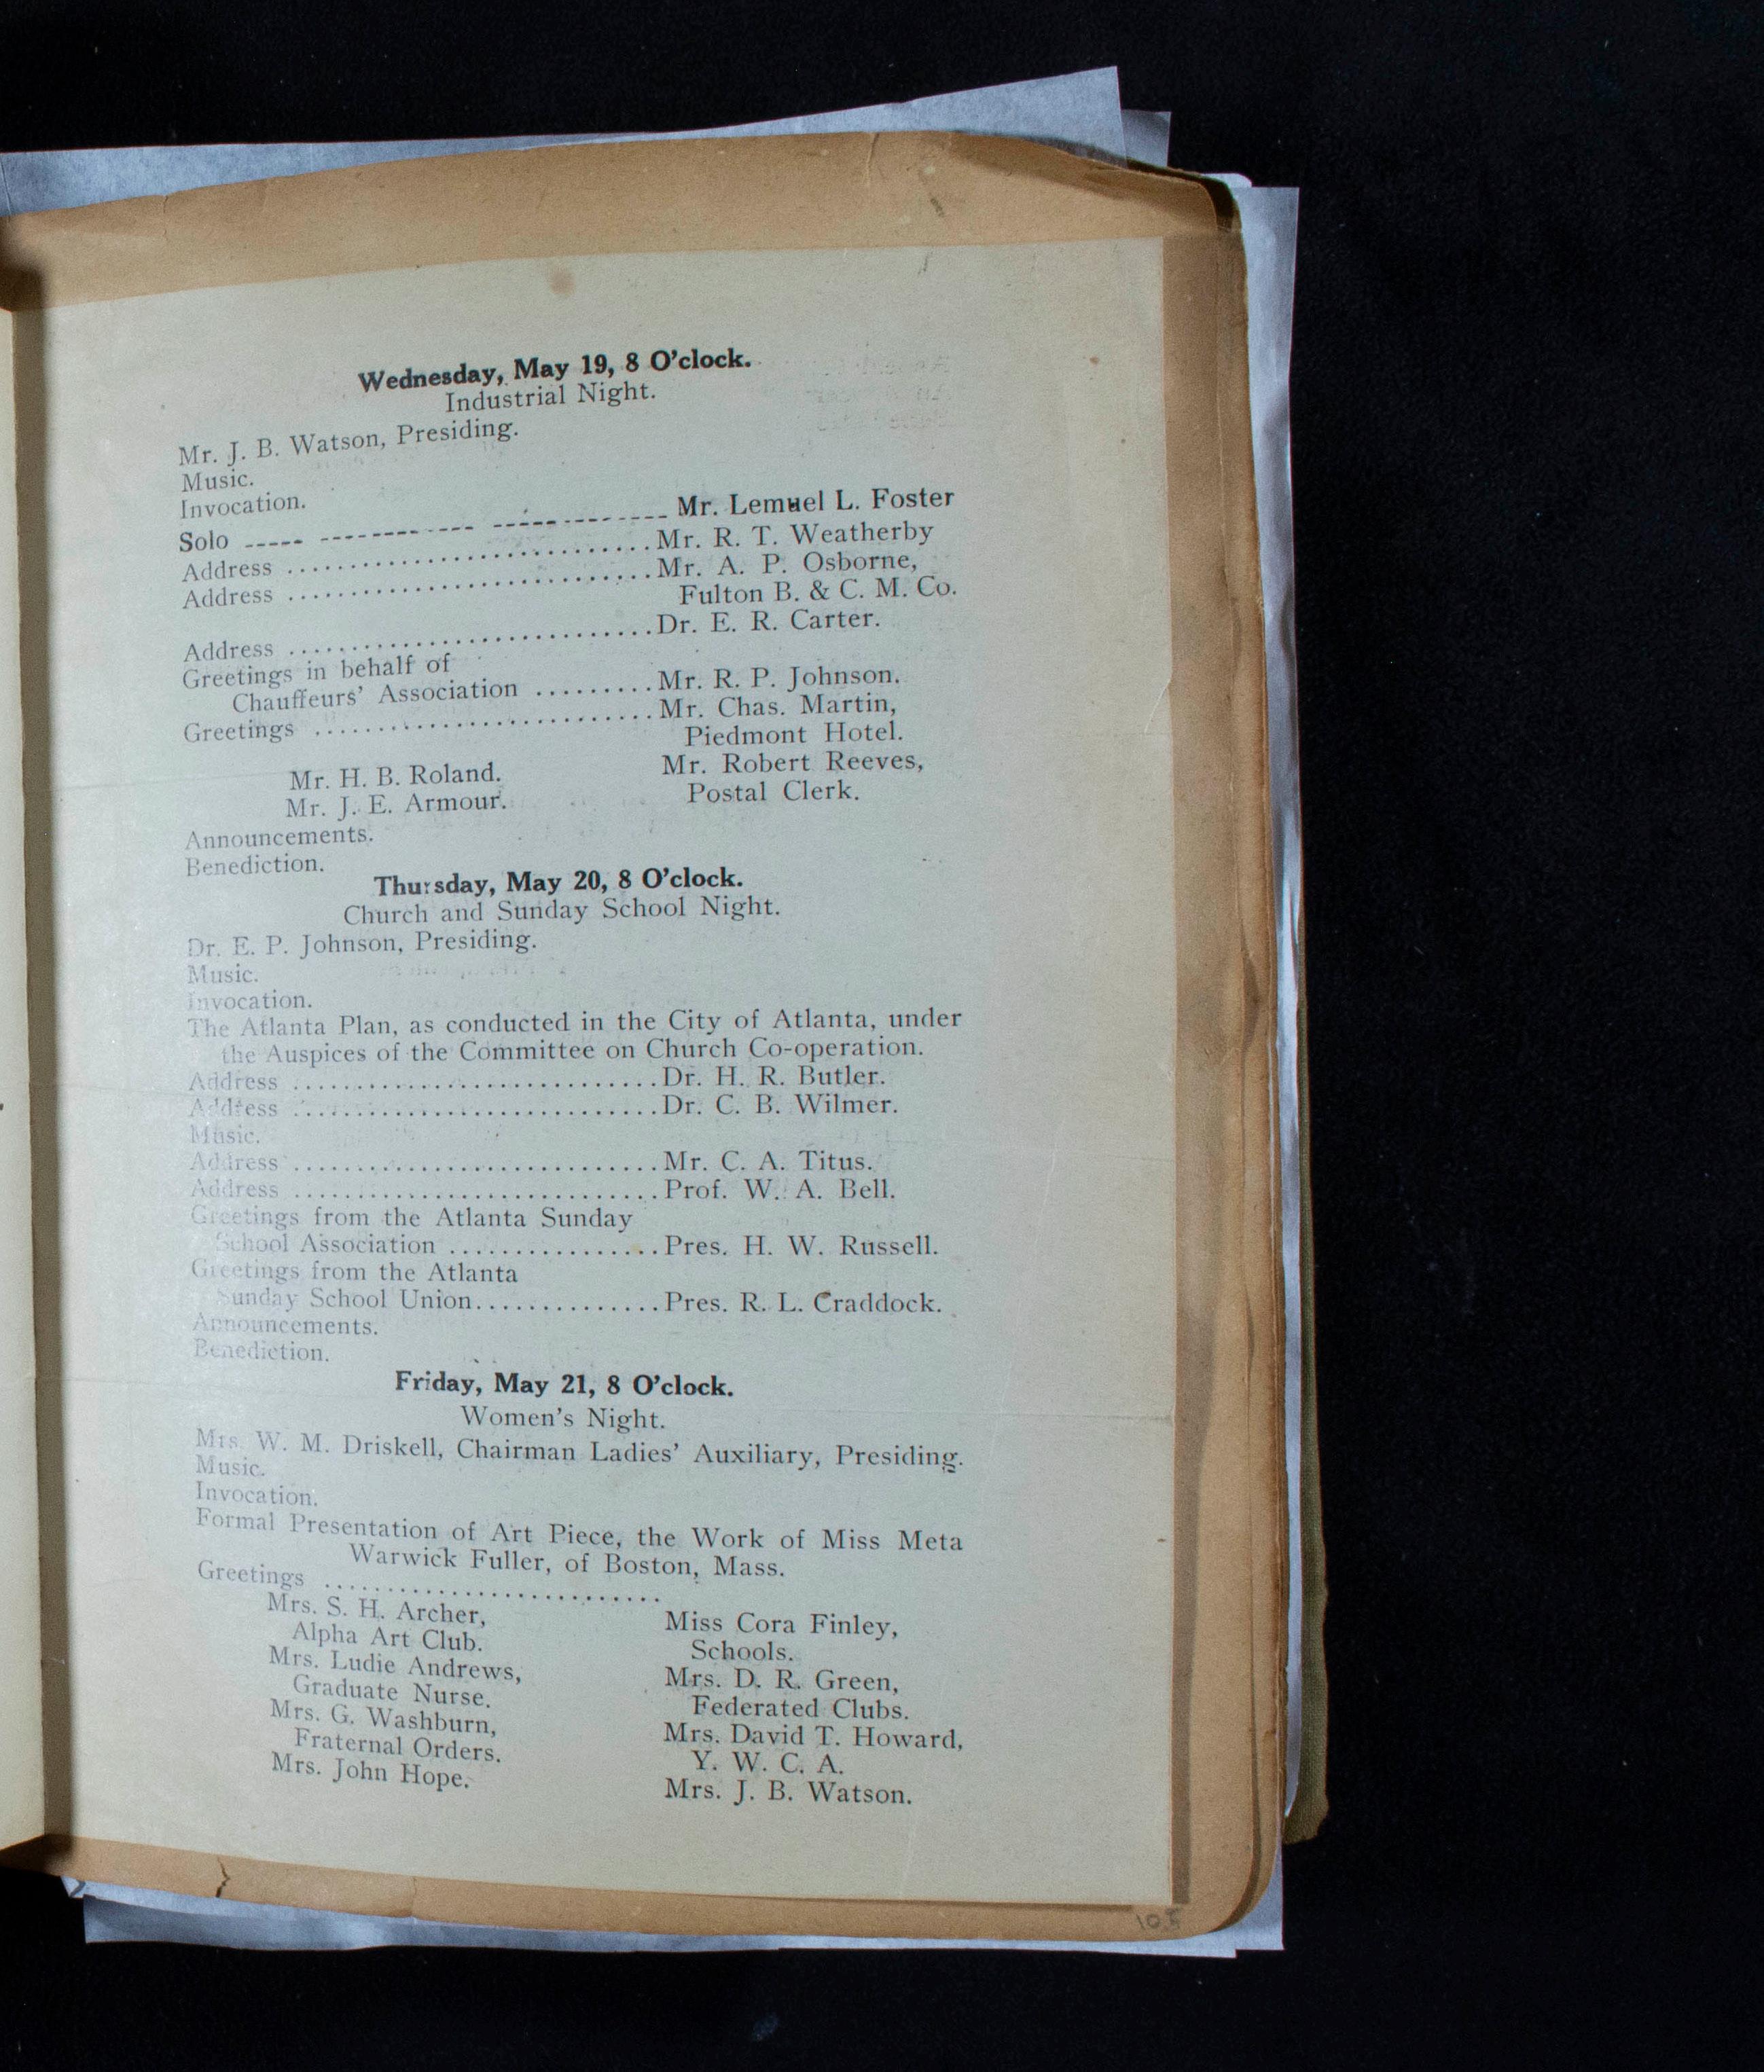 Wednesday, May 19, 8 O'clock.
Industrial Night.
Mr. J. B. Watson, Presiding.
Music.
Invocation.
Solo ----- --------- --- ------------- Mr. Lemuel L. Foster
Address ..................................Mr. R. T. Weatherby
Address ..................................Mr. A. P. Osborne,
Fulton B. & C. M. Co.
Address ..................................Dr. E. R. Carter.
Greetings in behalf of
Chauffeurs' Association .........Mr. R. P. Johnson.
Greetings ................................Mr. Chas. Martin,
Piedmont Hotel.
Mr. H. B. Roland. Mr. Robert Reeves,
Mr. J. E. Armour. Postal Clerk.
Announcements.
Benediction.
Thursday, May 20, 8 O'clock.
Church and Sunday School Night.
Dr. E. P. Johnson, Presiding.
Music.
Invocation.
The Atlanta Plan, as conducted in the City of Atlanta, under
the Auspices of the Committee on Church Co-operation.
Address .............................Dr. H. R. Butler.
Address .............................Dr. C. B. Wilmer.
Music.
Address .............................Mr. C. A. Titus.
Address .............................Prof. W. A. Bell.
Greetings from the Atlanta Sunday
School Association ................Pres. H. W. Russell.
Greetings from the Atlanta
Sunday School Union..............Pres. R. L. Craddock.
Announcements.
Benediction.
Friday, May 21, 8 O'clock.
Women's Night.
Mrs. W. M. Driskell, Chairman Ladies' Auxiliary, Presiding.
Music.
Invocation.
Formal Presentation of Art Piece, the Work of Miss Meta
Warwick Fuller, of Boston, Mass.
Greetings ...........................
Mrs. S. H. Archer, Miss Cora Finley,
Alpha Art Club. Schools.
Mrs. Ludie Andrews, Mrs. D. R. Green,
Graduate Nurse. Federated Clubs.
Mrs. G. Washburn, Mrs. David T. Howard,
Fraternal Orders. Y. W. C. A.
Mrs. John Hope. Mrs. J. B. Watson.
103